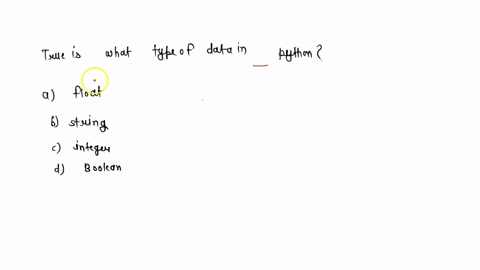 True is what type of data in _ python?
a) float
b) string
c) integer
d) Boolean